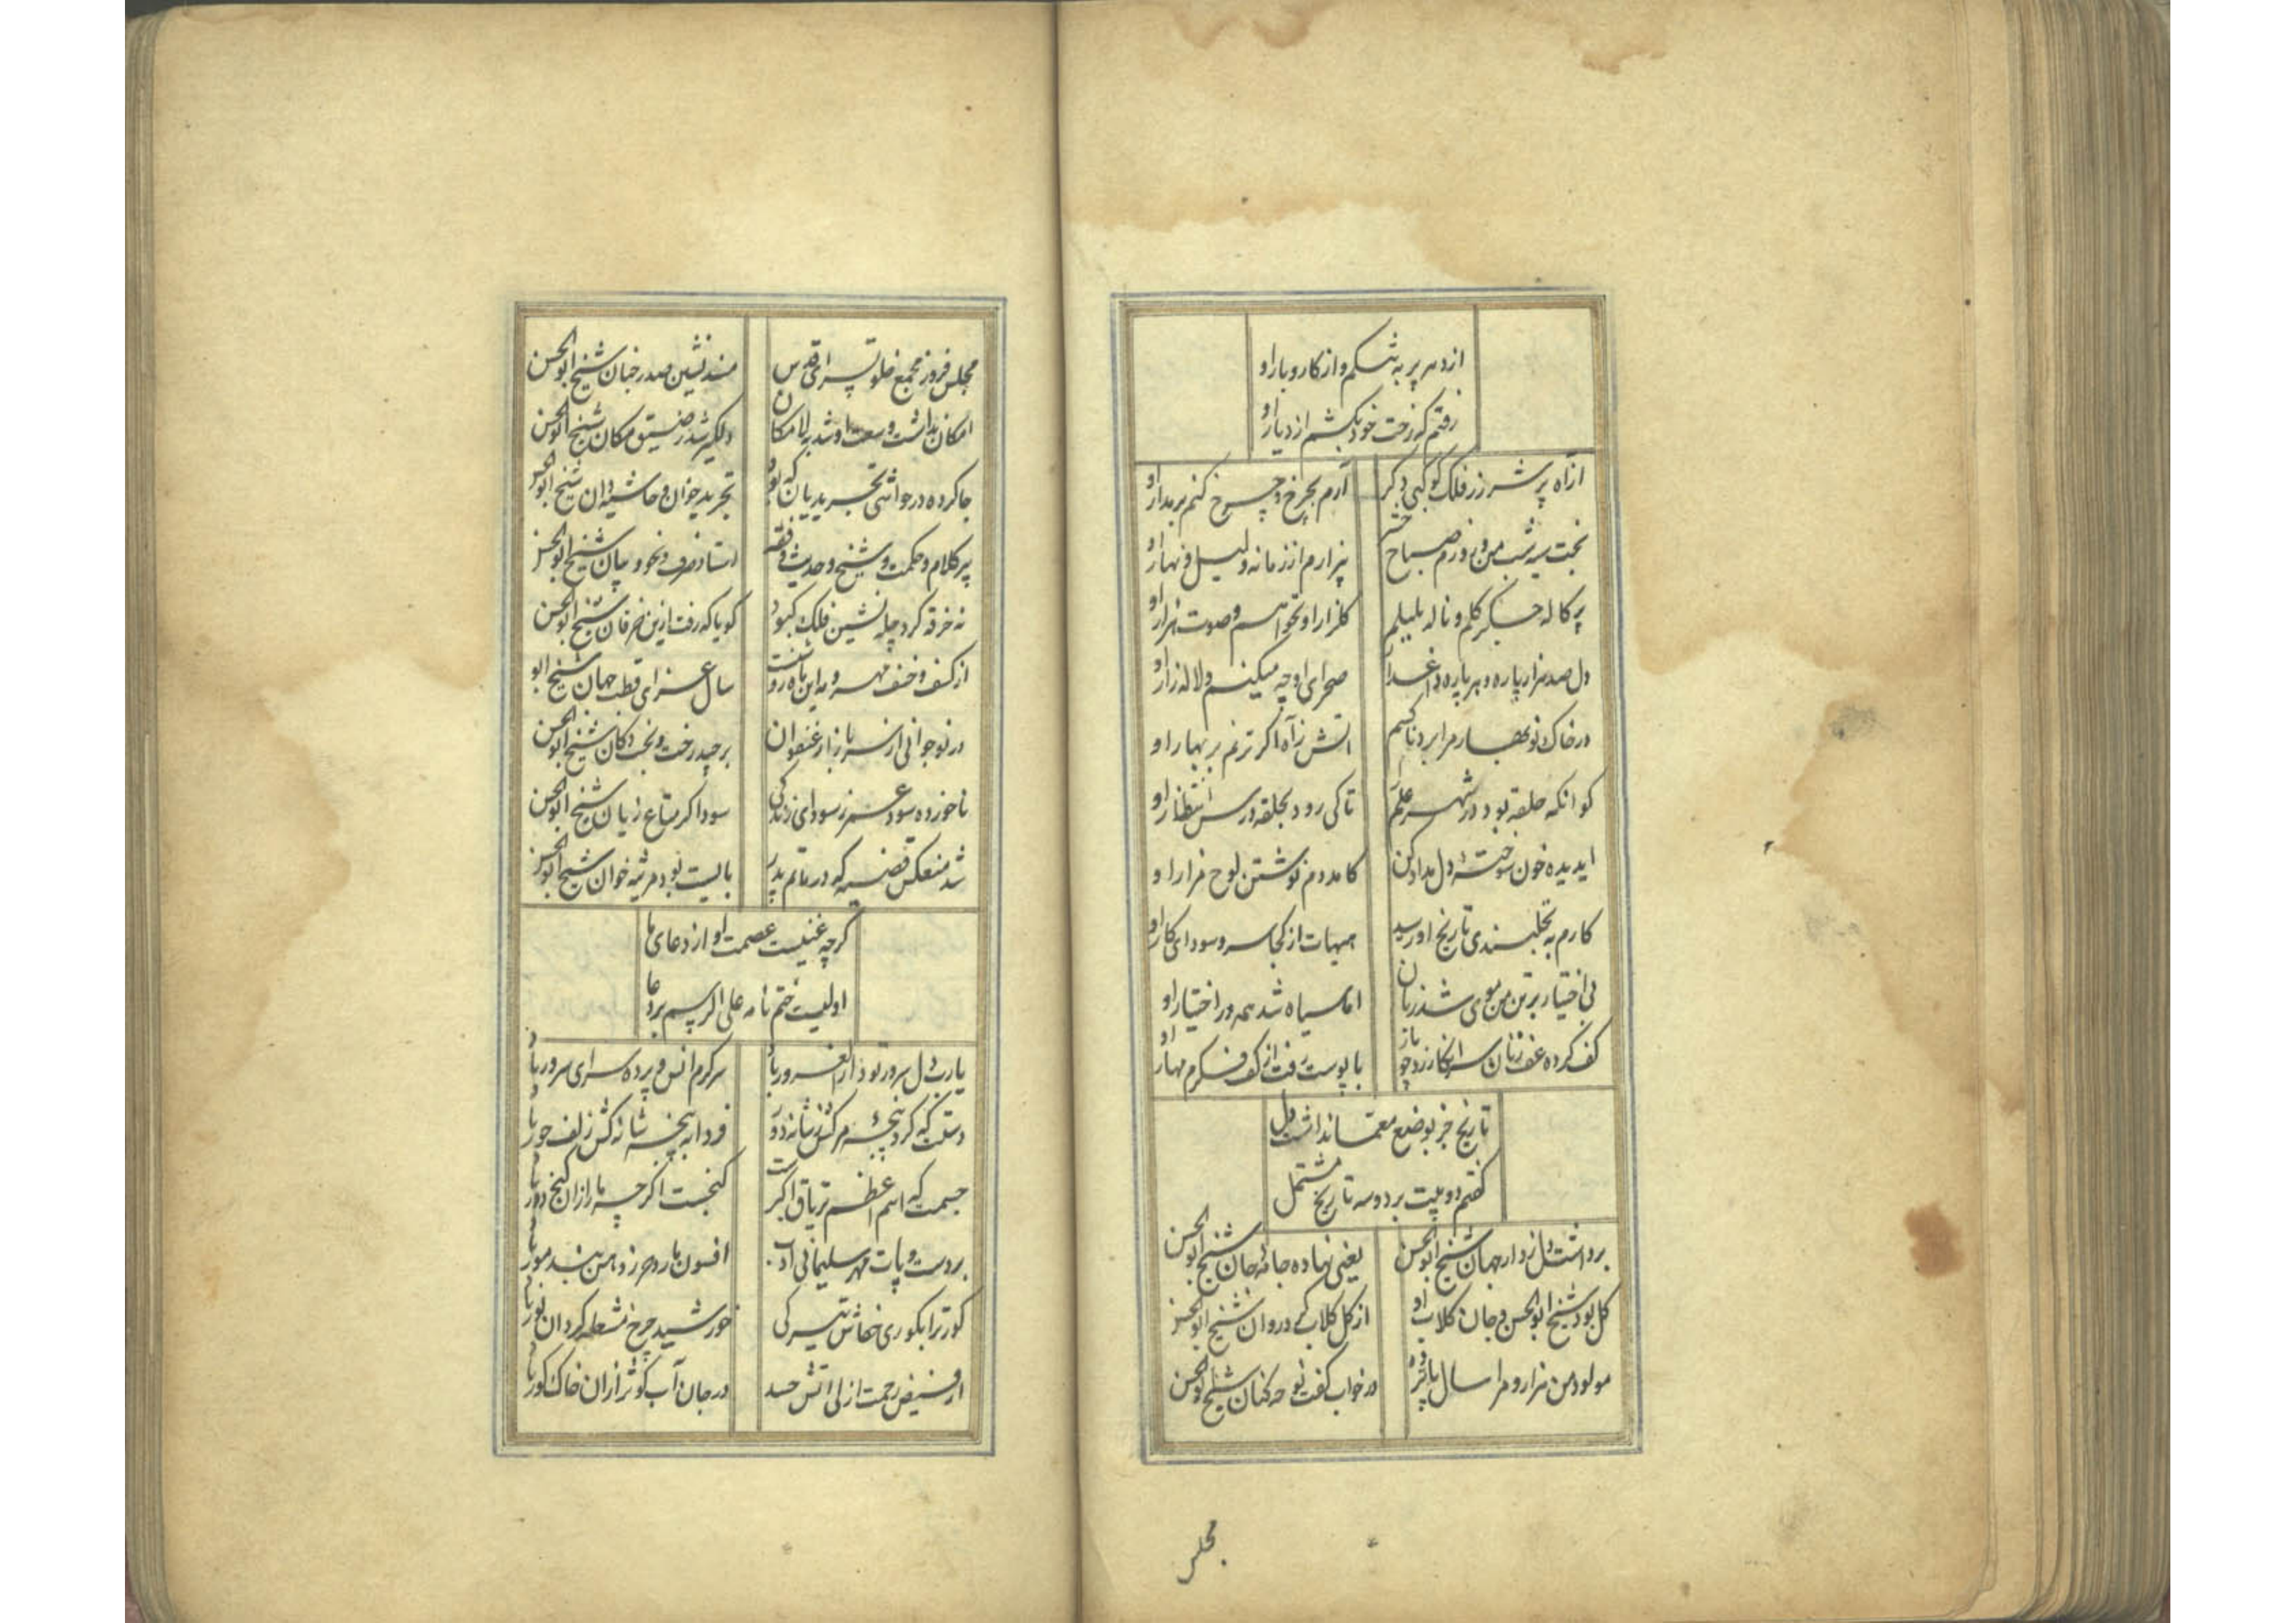 از دهر پر به تنگم و از کار و بار او
رفتم که رخت خود بکشم از دیار او
از آه پر شرر ز فلک کوکبی دگر آرم بچرخ و چرخ کنم بر مدار او
بخت سیه شب من و روزم صباح حشر بیزارم از زمانه و لیل و نهار او
پرکاله جگر گلم و ناله بلبلم گلزار او نخواهم و صوت هزار او
دل صد هزار پاره و هر پاره داغدار صحرای او چه میکنم و لاله زار او
در خاک نوبهار مرا برد ناکسم آتش ز آه اگر نزنم بر بهار او
کو آنکه حلقه بود در شهر علم را تا کی رود بحلقه درس انتظار او
ای دیده خون سوخته دل مداد کن کامد دم نوشتن لوح مزار او
کارم به نخلبندی تاریخ او رسید هیهات از کجا سر و سودای کار او
بی اختیار بر تن من موی شد زبان اما سیاه شد همه در اختیار او
کف کرده عف زنان سر انکار زد چو باز با پوست رفت از کف فکرم مهار او
تاریخ جز بوضع معما نداشت دل
گفتم دو بیت بر دو سه تاریخ مشتمل
برداشت دل ز دار جهان شیخ ابوالحسن یعنی نهاده جامه جان شیخ ابوالحسن
گل بود شیخ ابوالحسن و جان گلاب او از گل گلاب کی در وان شیخ ابوالحسن
مولود من هزار و مرا سال پانزده در خواب گفت نوحه کنان شیخ ابوالحسن
مجلس
مجلس فروز مجمع خلوت سرای قدس مسند نشین صدر جنان شیخ ابوالحسن
امکان نداشت وسعت او شد به لامکان دلگیر شد ز ضیق مکان شیخ ابوالحسن
جا کرده در حواشی تجرید یان که بود تجرید خوان و حاشیه دان شیخ ابوالحسن
پیر کلام و حکمت و شیخ و حدیث و فقه استاد صرف و نحو و بیان شیخ ابوالحسن
نه خرقه کرد چله نشین فلک کبود گویا که رفت ازین خرفان شیخ ابوالحسن
از کسف و خسف مهر و مه این ماه رو نهفت سال عزای قطب جهان شیخ ابو
در نوجوانی از سر بازار عنفوان برچید رخت و تخت دکان شیخ ابوالحسن
ناخورده سود عمر ز سودای زندگی سوداگر متاع زیان شیخ ابوالحسن
شد منعکس قضیه که در ماتم پدر بایست بود مرثیه خوان شیخ ابوالحسن
گرچه غنیست عصمت او از دعای ما
اولیست ختم نامه علی الرسم بر دعا
یارب دل سرور تو دار الغرور باد سرگرم انس و پرده سرای سرور باد
دستت که کرد پنجه مرگش ز شانه دور فردا به پنجه شانه کش زلف حور باد
جسمت که اسم اعظم تریاق اکبرست گنجست اگر چه مار از آن گنج دور باد
بر دست و پات مهر سلیمانی ادب افسون مار و حرز دهن بند مور باد
گور ترا بکوری خفاش تیرگی خورشید چرخ مشعله گردان نور باد
از فیض رحمت ازلی آتش حسد در جان آب کوثر از آن خاک گور باد